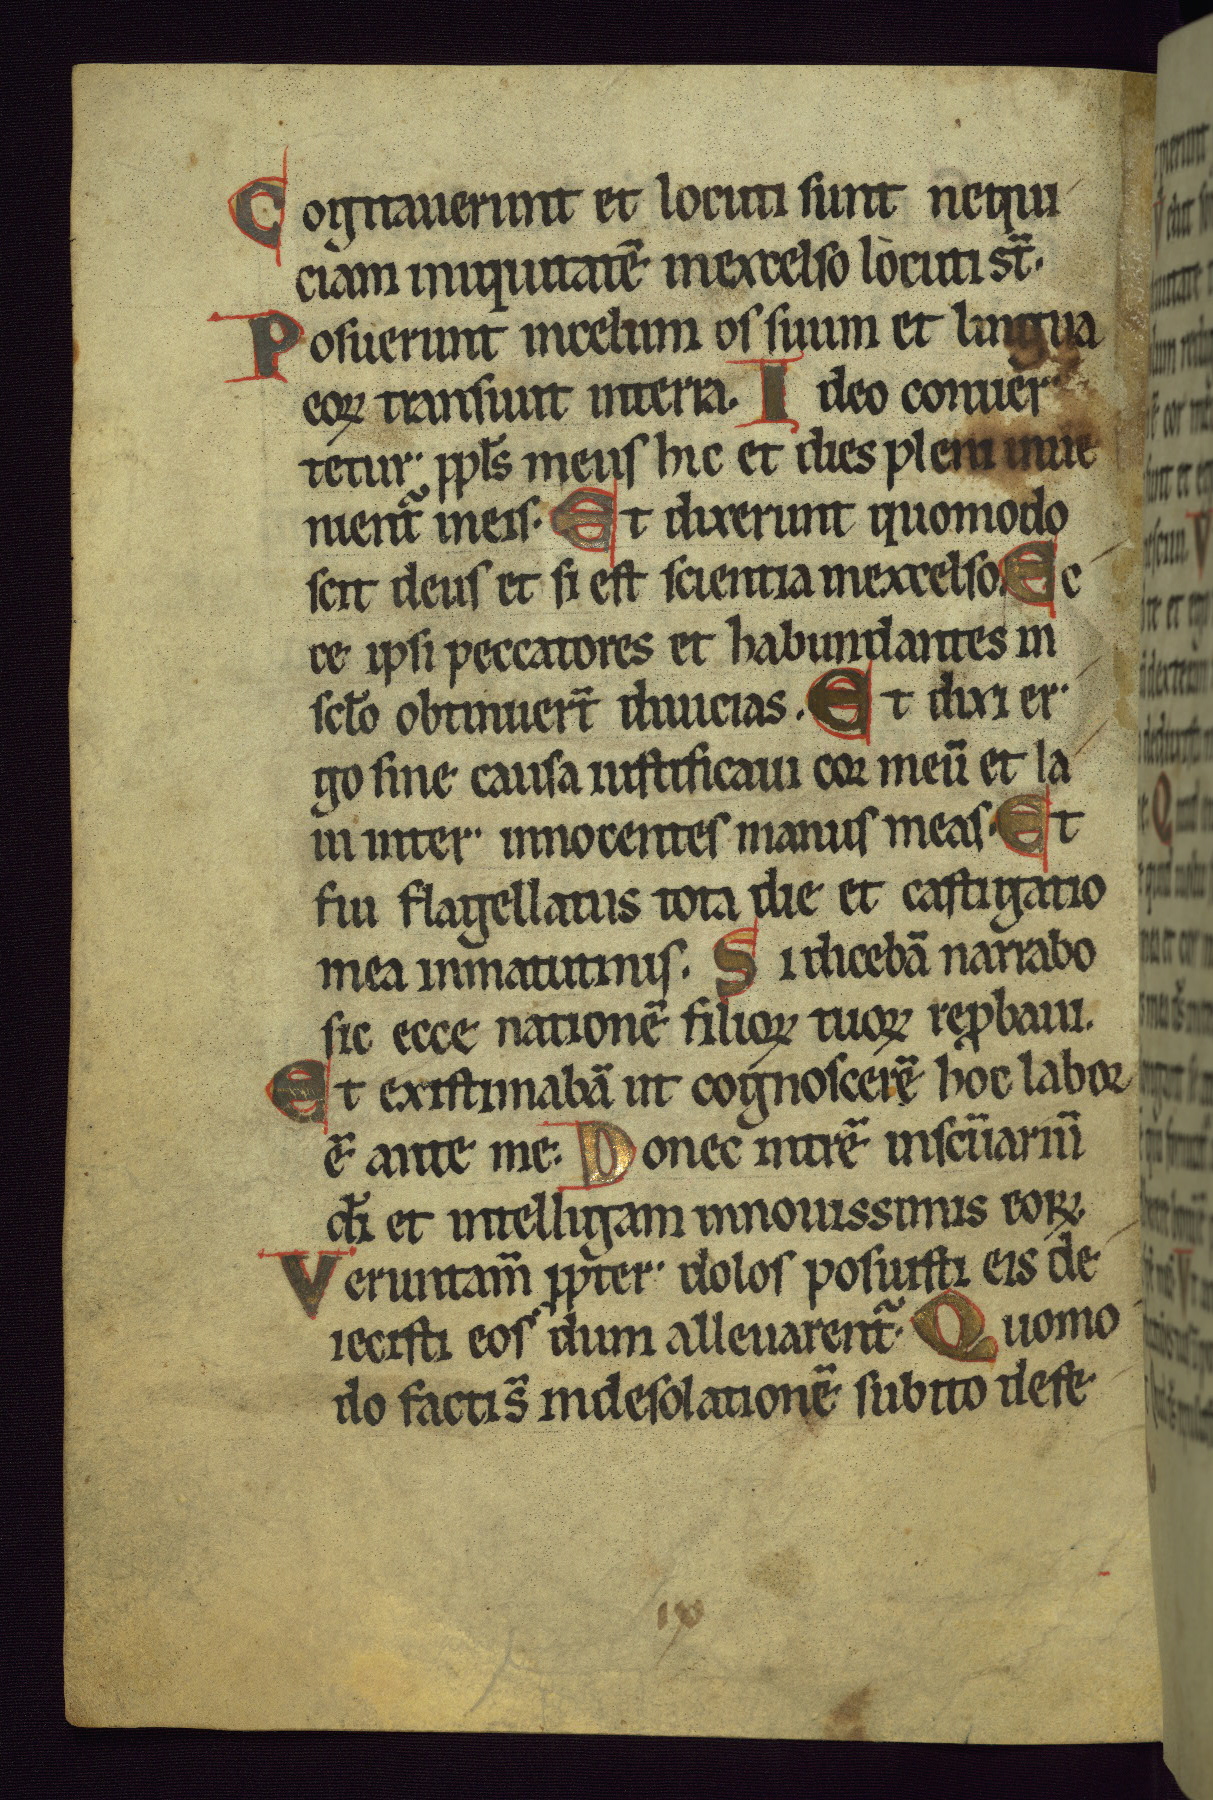 Cogitauerunt et locuti sunt nequi
ciam iniquitatē inexcelso locuti st̄.
Posuerunt incelum os suum et lingua
eoꝝ transiuit interra. Ideo conuer
tetur ppl̄s meus hic et dies pleni inue
nient̃ ineis. Et dixerunt quomodo
scit deus et si est scientia inexcelso. Ec
ce ipsi peccatores et habundantes in
scl̄o obtinuerт̄ diuicias. Et dixi er
go sine causa iustificaui cor meū et la
ui inter innocentes manus meas. Et
fui flagellatus tota die et castigatio
mea inmatutinis. Si dicebā narrabo
sic ecce nationē filioꝝ tuoꝝ reꝓbaui.
Et existimabā ut cognoscerē hoc labor
ē ante me. Donec intrē insc̄uariū
dī et intelligam innouissimis eoꝝ.
Veruntam̄ ppt̄er dolos posuisti eis de
iecisti eos dum alleuarent̃. Quomo
do facti s̄ indesolationē subito defe